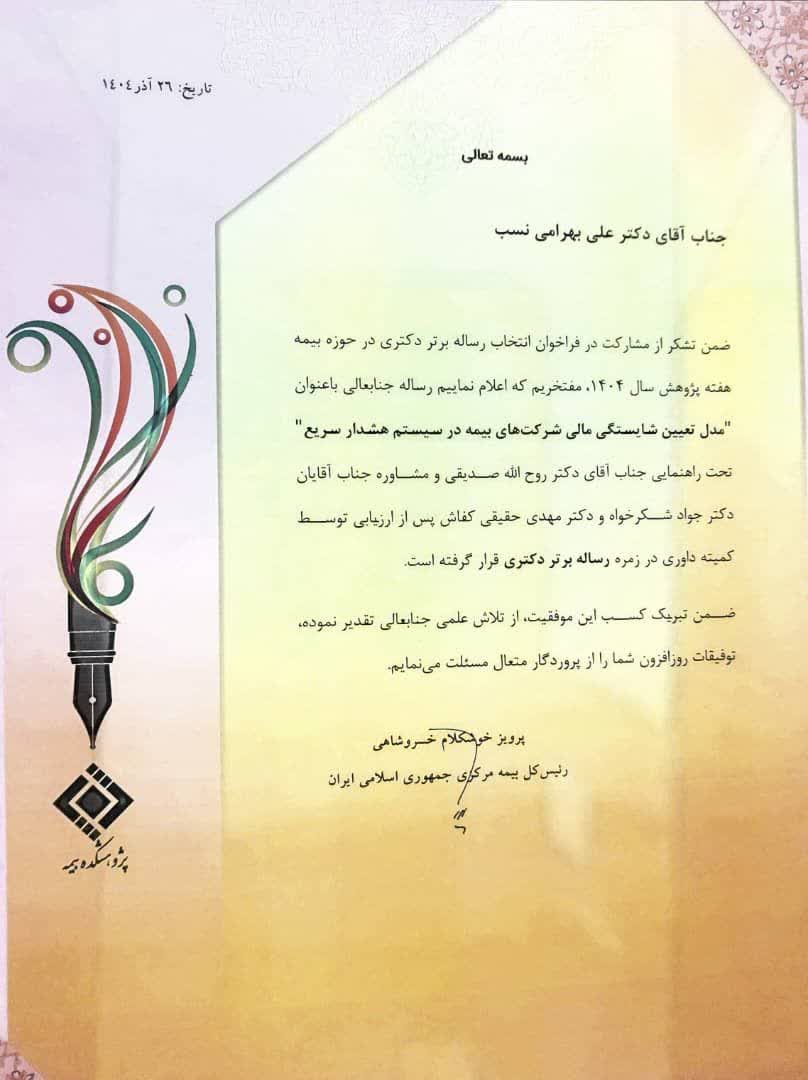 تاریخ: ۲۶ آذر ۱۴۰۴
بسمه تعالی
جناب آقای دکتر علی بهرامی نسب
ضمن تشکر از مشارکت در فراخوان انتخاب رساله برتر دکتری در حوزه بیمه
هفته پژوهش سال ۱۴۰۴، مفتخریم که اعلام نماییم رساله جنابعالی باعنوان
"مدل تعیین شایستگی مالی شرکت‌های بیمه در سیستم هشدار سریع"
تحت راهنمایی جناب آقای دکتر روح الله صدیقی و مشاوره جناب آقایان
دکتر جواد شکرخواه و دکتر مهدی حقیقی کفاش پس از ارزیابی توسط
کمیته داوری در زمره رساله برتر دکتری قرار گرفته است.
ضمن تبریک کسب این موفقیت، از تلاش علمی جنابعالی تقدیر نموده،
توفیقات روزافزون شما را از پروردگار متعال مسئلت می‌نمایم.
پرویز خوشکلام خسروشاهی
رئیس‌کل بیمه مرکزی جمهوری اسلامی ایران
پژوهشکده بیمه